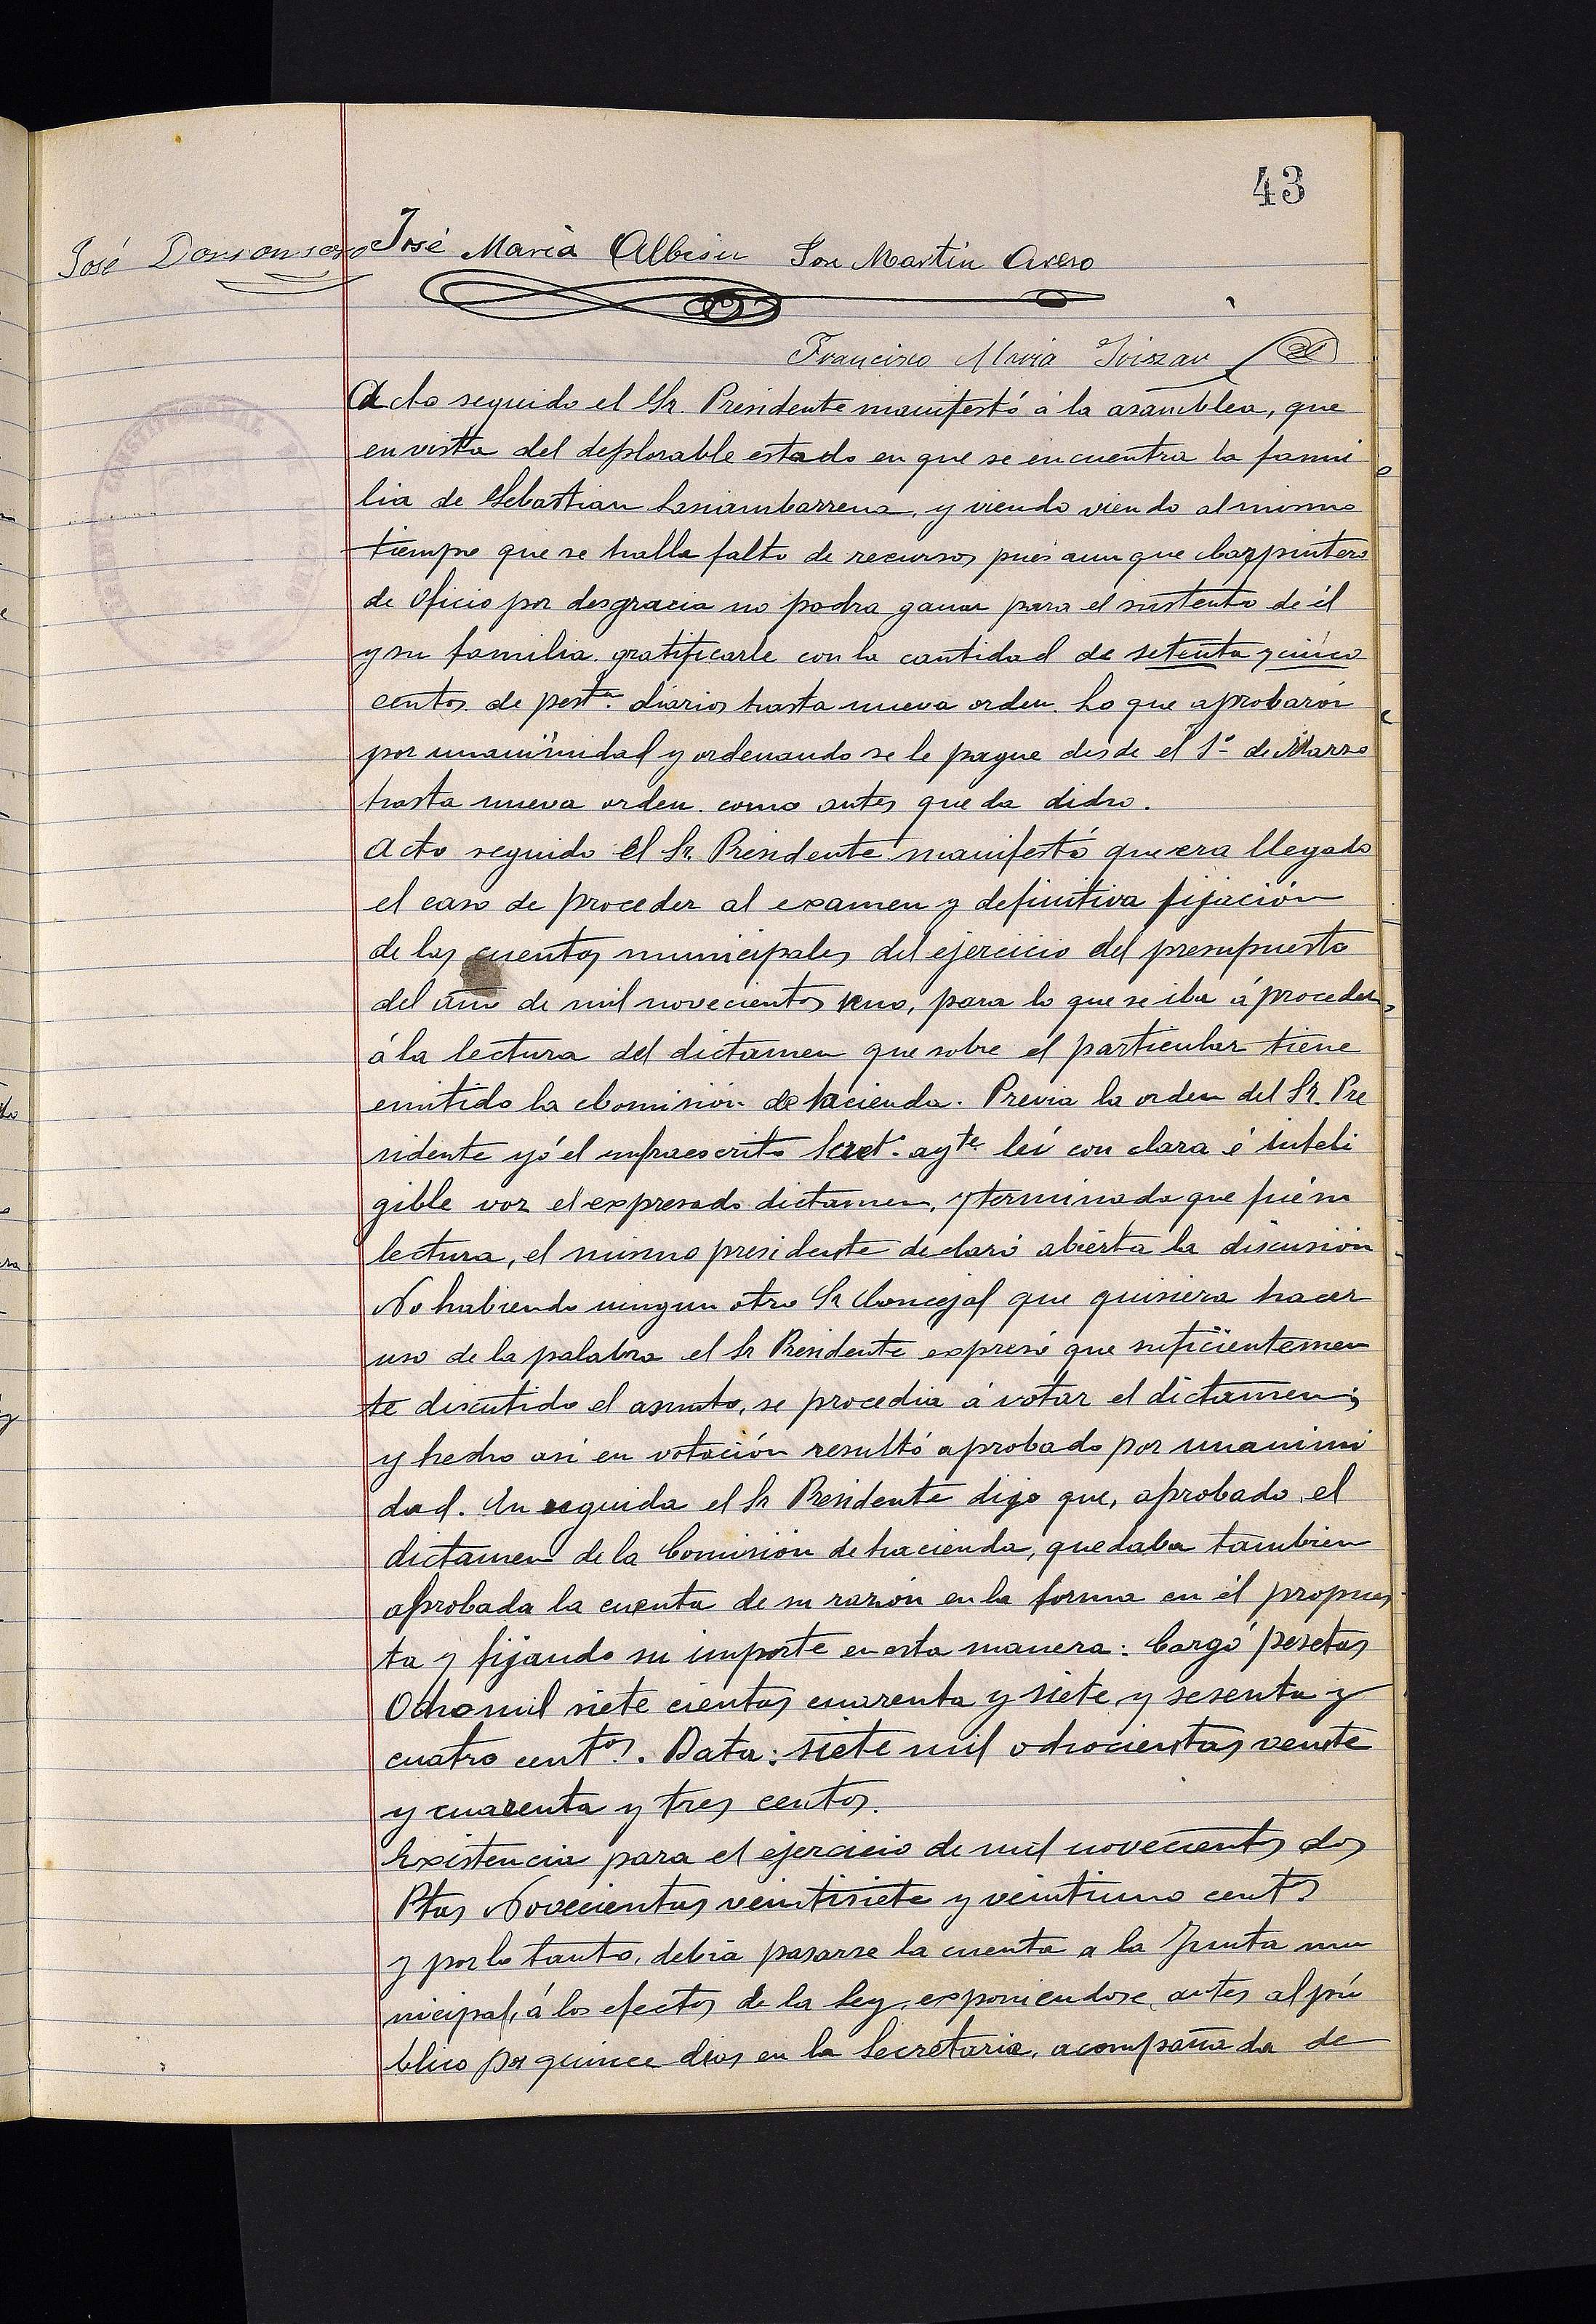 43
José María Albisu José Martín Otero
José
Francisco María
Acto seguido el Sr. Presidente manifestó á la asamblea, que
en vista del deplorable estado en que se encuentra la fami
lia de Sebastian Lasiambarrena, y viendo viendo al mismo
tiempo que se halla falto de recursos pues aun que Carpintero
de Oficio por desgracia no podra ganar para el sustento de él
y su familia. gratificarle con la cantidad de setenta y cinco
centos. de pesta. diarios hasta nueva orden. Lo que aprobaron
por unanimidad y ordenando se le pague desde el 1º de Marzo
hasta nueva orden. como antes queda dicho.
Acto seguido el Sr. Presidente manifestó que era llegado
el caso de proceder al examen y definitiva fijación
de las cuentas municipales del ejercicio del presupuesto
del año de mil novecientos uno, para lo que se iba á proceder
á la lectura del dictamen que sobre el particular tiene
emitido la Comisión de hacienda. Previa la orden del Sr. Pre
sidente yó el infraescrito Secret.º aytº. leí con clara é inteli
gible voz el expresado dictamen, y terminada que fué su
lectura, el mismo presidente declaró abierta la discusión
No habiendo ningun otro Sr Concejal que quisiera hacer
uso de la palabra el Sr Presidente expresó que suficientemen
te discutido el asunto, se procedia á votar el dictamen;
y hecho asi en votación resultó aprobado por unanimi
dad. En seguida el Sr Presidente dijo que, aprobado el
dictamen de la Comisión de hacienda, quedaba tambien
aprobada la cuenta de su razón en la forma en él propues
ta y fijando su importe en esta manera: Cargó pesetas
Ocho mil siete cientas cuarenta y siete y sesenta y
cuatro centos. Data: siete mil ochocientas veinte
y cuarenta y tres centos.
Existencia para el ejercicio de mil novecientos dos
Ptas Novecientas veintisiete y veintiuno cents
y por lo tanto, debia pasarse la cuenta a la Junta mu
nicipal, á los efectos de la Ley, exponiendose antes al pú
blico por quince dias en la Secretaria, acompañada de